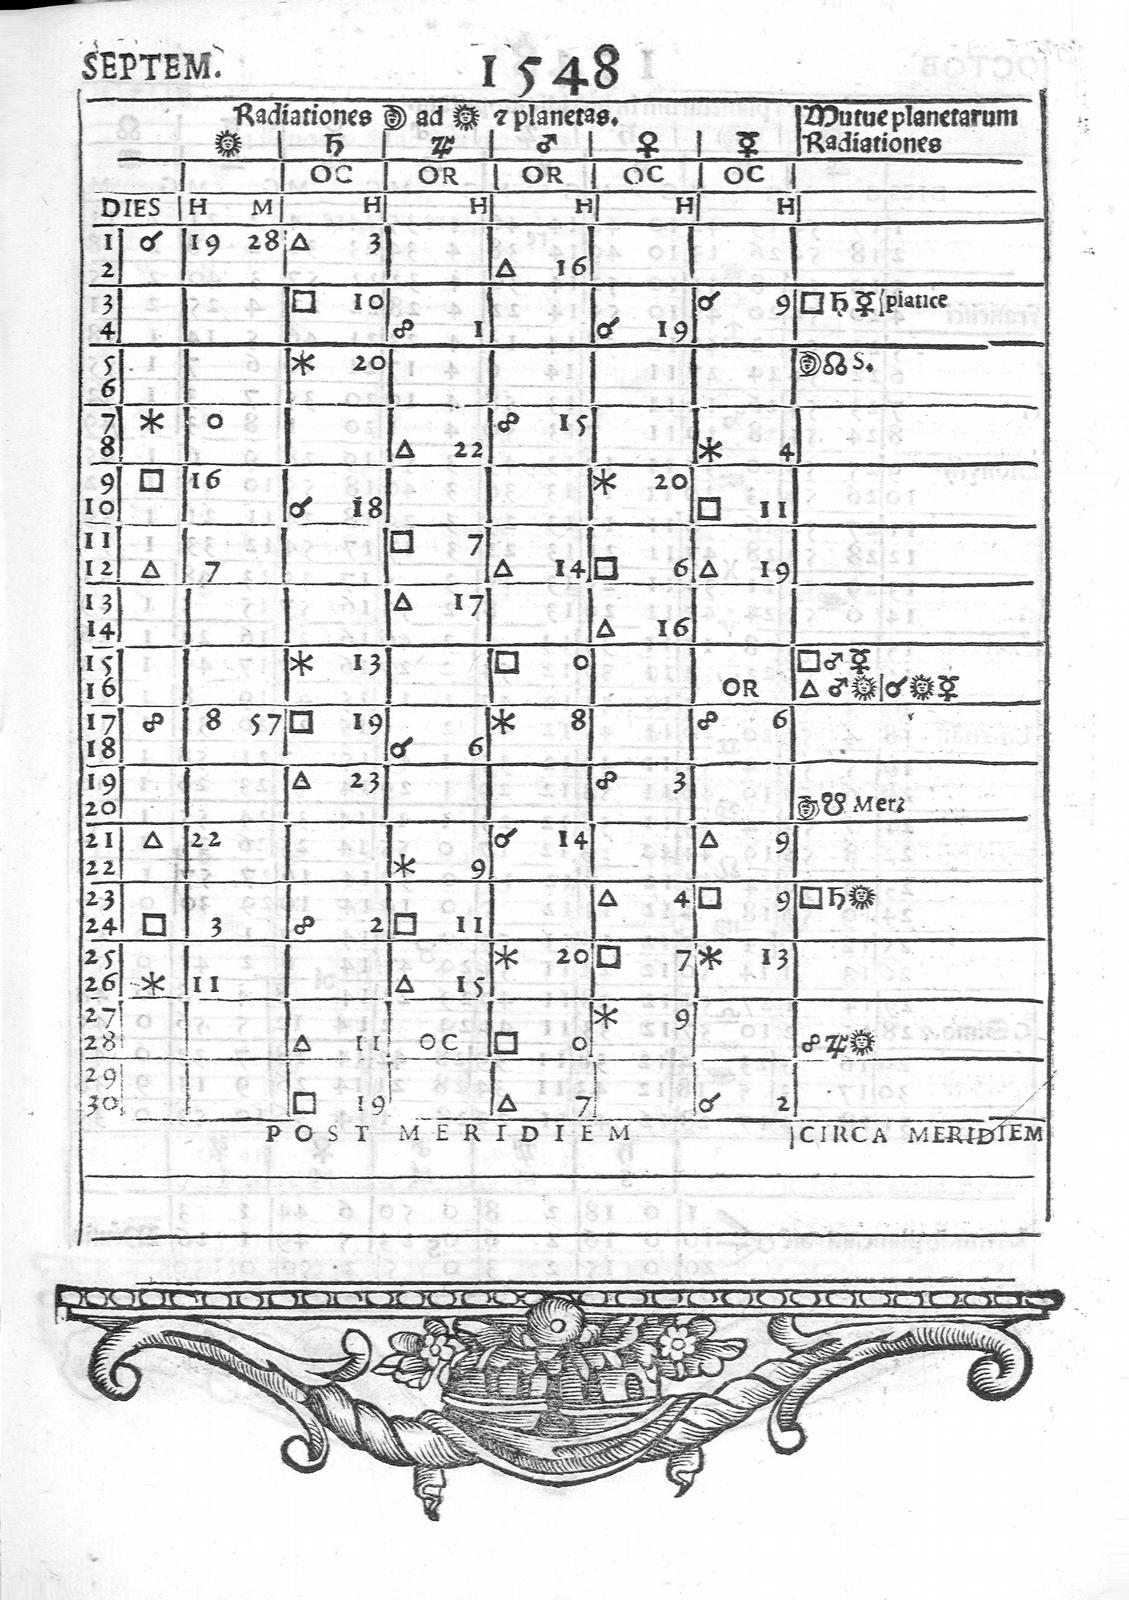 SEPTEM. 1548
Radiationes ☽ ad ☉ ⁊ planetas. Mutue planetarum
☉ ♄ ♃ ♂ ♀ ☿ Radiationes
OC OR OR OC OC
DIES H M H H H H H
1 ☌ 19 28 △ 3
2 △ 16
3 □ 10 ☌ 9 □ ♄ ☿ platice
4 ☍ 1 ☌ 19
5 ⚹ 20 ☽ ☊ S.
6
7 ⚹ 0 ☍ 15
8 △ 22 ⚹ 4
9 □ 16 ⚹ 20
10 ☌ 18 □ 11
11 □ 7
12 △ 7 △ 14 □ 6 △ 19
13 △ 17
14 △ 16
15 ⚹ 13 □ 0 □ ♂ ☿
16 OR △ ♂ ☉ ☌ ☉ ☿
17 ☍ 8 57 □ 19 ⚹ 8 ☍ 6
18 ☌ 6
19 △ 23 ☍ 3
20 ☽ ☋ Meri
21 △ 22 ☌ 14 △ 9
22 ⚹ 9
23 △ 4 □ 9 □ ♄ ☉
24 □ 3 ☍ 2 □ 11
25 ⚹ 20 □ 7 ⚹ 13
26 ⚹ 11 △ 15
27 ⚹ 9
28 △ 11 OC □ 0 ☍ ♃ ☉
29
30 □ 19 △ 7 ☌ 2
POST MERIDIEM CIRCA MERIDIEM